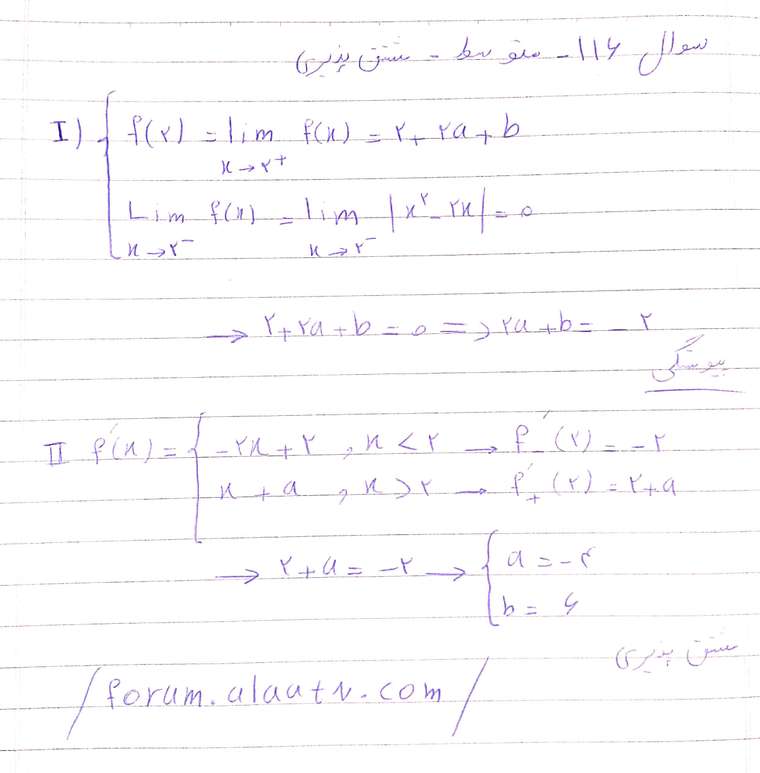 سوال ۱۱۶ - متوسط - مشتق پذیری
I) { f(۲) = lim f(x) = ۲ + ۲a + b
x → ۲⁺
Lim f(x) = lim |x² - ۲x| = ۰
x → ۲⁻ x → ۲⁻
→ ۲ + ۲a + b = ۰ => ۲a + b = -۲
پیوستگی
II f'(x) = { -۲x + ۲ , x < ۲ → f'₋(۲) = -۲
x + a , x > ۲ → f'₊(۲) = ۲ + a
→ ۲ + a = -۲ → { a = -۴
b = ۶
مشتق پذیری
/forum.alaatv.com/